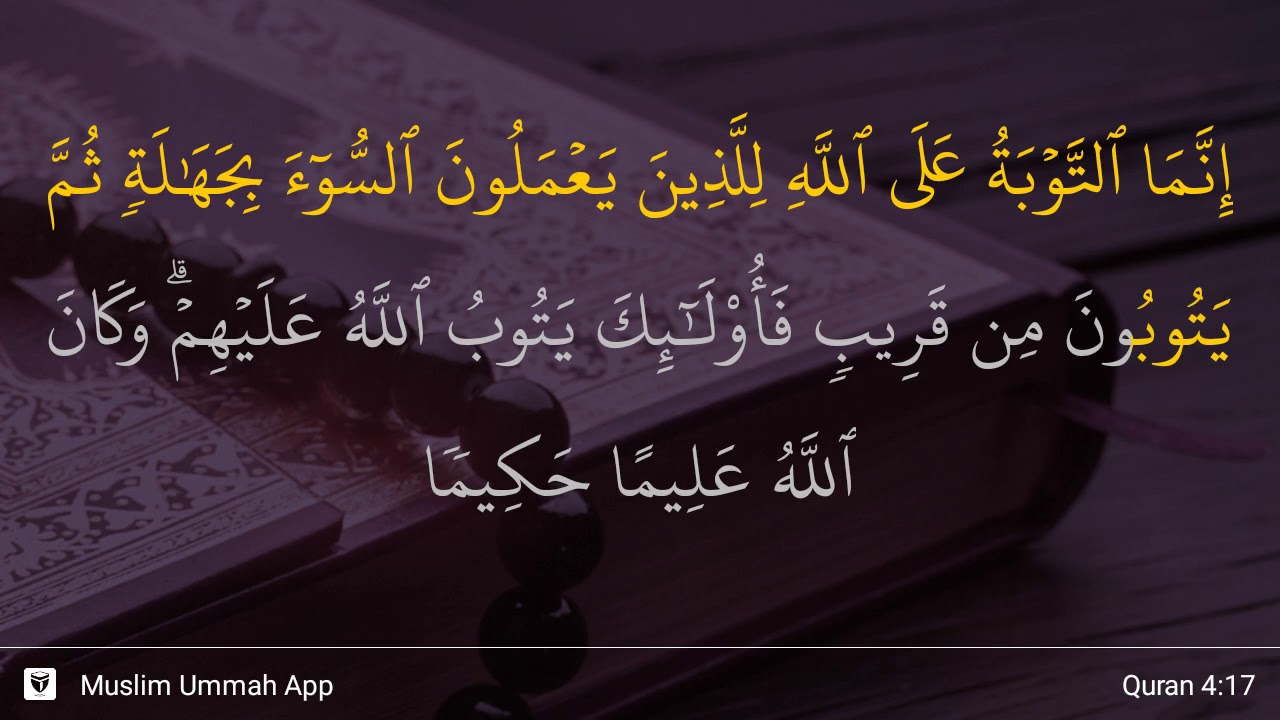 إِنَّمَا ٱلتَّوۡبَةُ عَلَى ٱللَّهِ لِلَّذِينَ يَعۡمَلُونَ ٱلسُّوٓءَ بِجَهَٰلَةٖ ثُمَّ
يَتُوبُونَ مِن قَرِيبٖ فَأُوْلَٰٓئِكَ يَتُوبُ ٱللَّهُ عَلَيۡهِمۡۗ وَكَانَ
ٱللَّهُ عَلِيمًا حَكِيمٗا
Muslim Ummah App
Quran 4:17